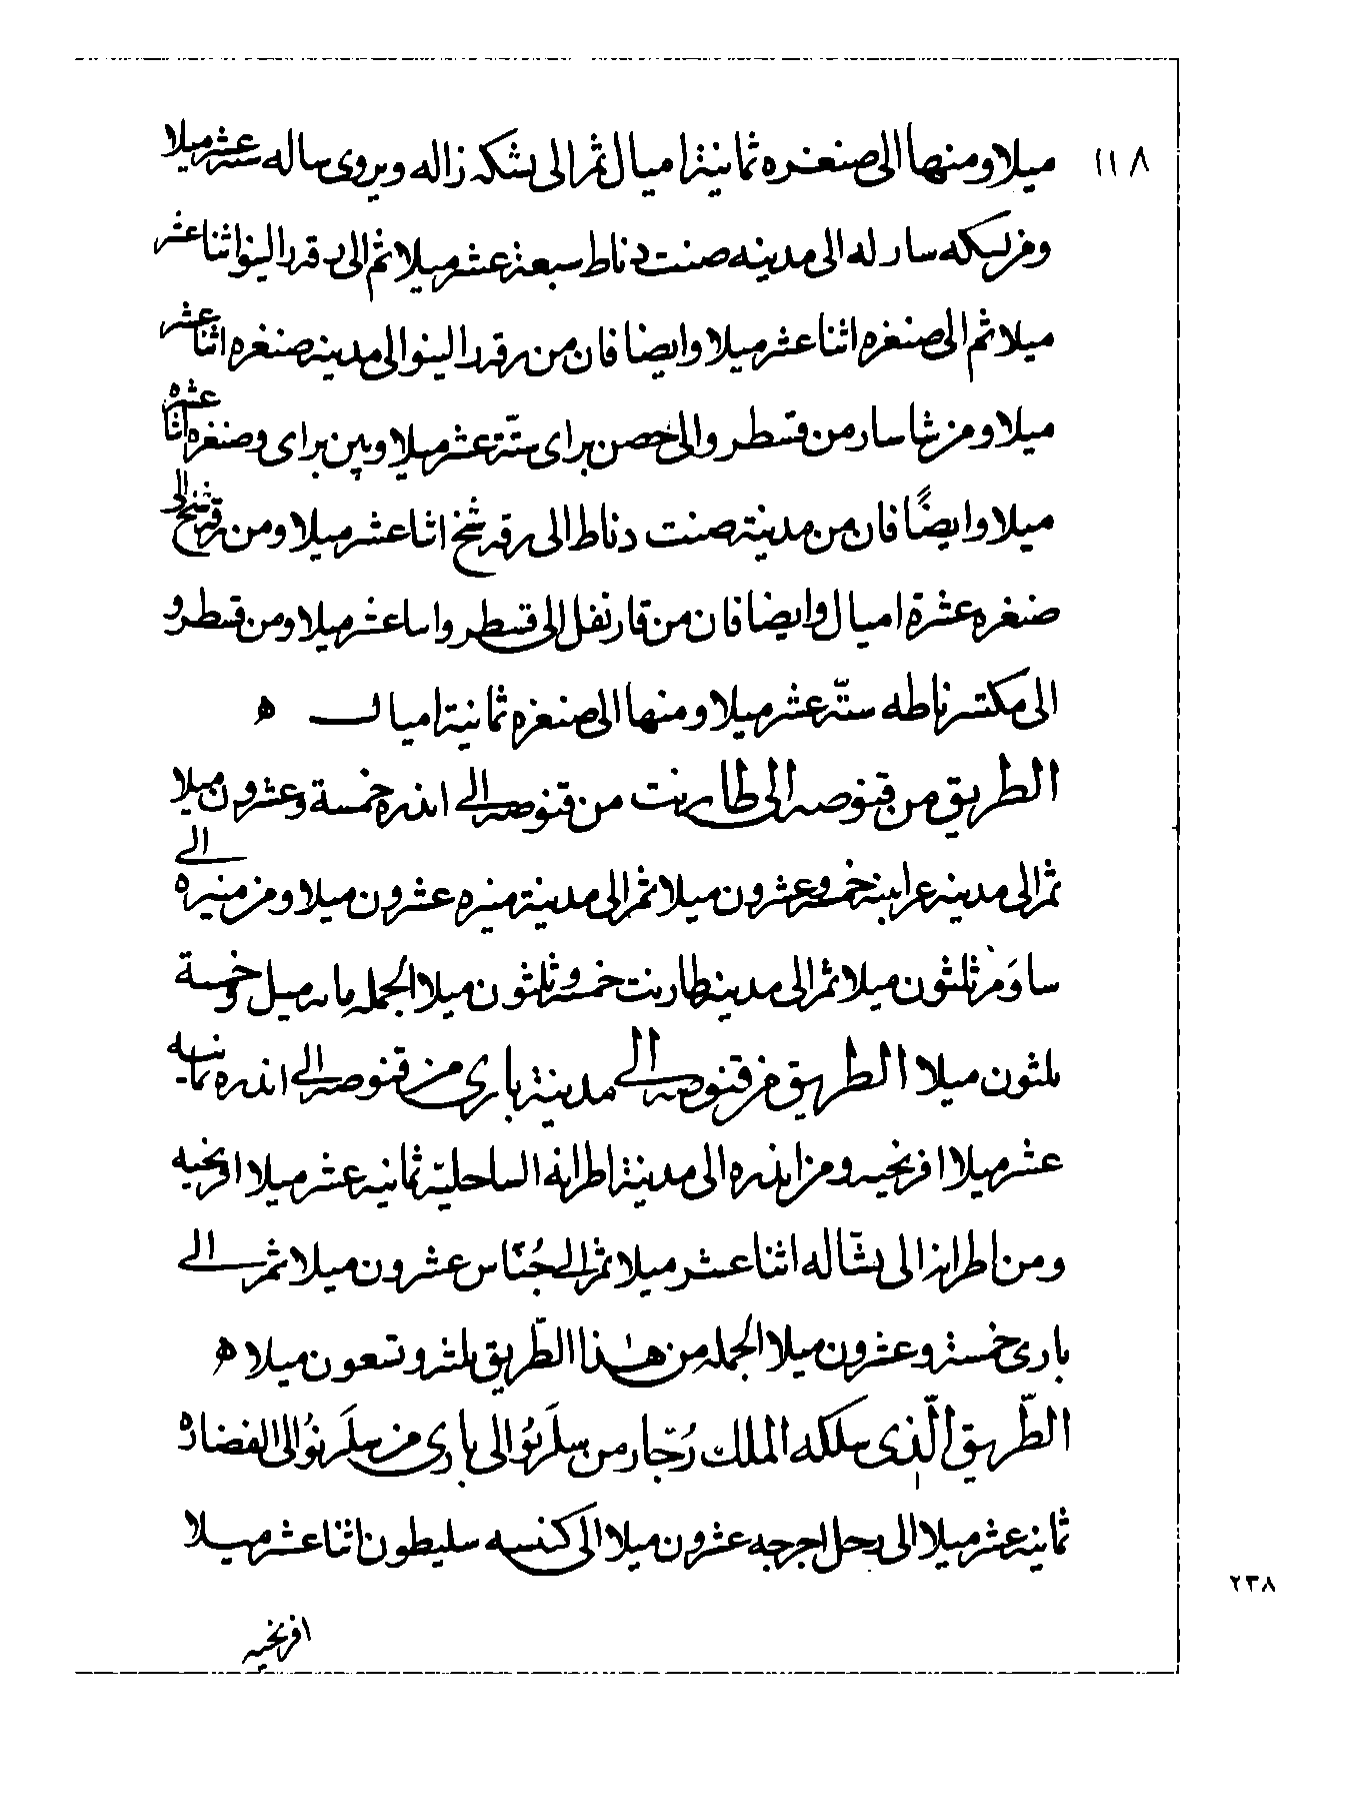 ١١٨
ميلا ومنها الى صنغره ثمانية اميال ثم الى بشكه زاله ويروى ساله ستة عشر ميلا
ومن بسكه ساد له الى مدينه صنت دناط سبعة عشر ميلا ثم الى رقد الينو اثنا عشر
ميلا ثم الى صنغره اثنا عشر ميلا وايضا فان من رقد الينو الى مدينه صنغره اثنا عشر
ميلا ومن شاسار من قسطر والى حصن براى ستّة عشر ميلا وبين براى وصنغره اثنا عشره
ميلا وايضًا فان من مدينة صنت دناط الى رقه شخ اثنا عشر ميلا ومن رقه شخ الى
صنغره عشرة اميال وايضا فان من قارنفل الى قسطرو اسا عشر ميلا ومن قسطرو
الى مكتسرناطه ستّه عشر ميلا ومنها الى صنغره ثمانية اميال ه
الطريق من قنوصه الى طارنت من قنوصه الى اندره خمسة وعشرون ميلا
ثم الى مدينه عرابنه خمسة وعشرون ميلا ثم الى مدينة منيره عشرون ميلا ومن منيره الى
ساومن ثلثون ميلا ثم الى مدينه طارنت خمسة وثلثون ميلا الجمله مائه ميل وخمسة
ثلثون ميلا الطريق من قنوصه الى مدينة بارى من قنوصه الى اندره ثمانيه
عشر ميلا افرنجيه ومن اندره الى مدينة اطرانه الساحليّه ثمانيه عشر ميلا افرنجيه
ومن اطرانه الى بشّاله اثنا عشر ميلا ثم الى جُنّاس عشرون ميلا ثم الى
بارى خمسة وعشرون ميلا الجمله من هذا الطّريق ثلثه وتسعون ميلا ه
الطّريق الّذى سلكه الملك رُجّار من سلَرنُو الى بارى من سلَرنُو الى الفضاره
ثمانيه عشر ميلا الى رحل اجرجه عشرون ميلا الى كنسه سليطون اثنا عشر ميلا
افرنجيه
٢٣٨